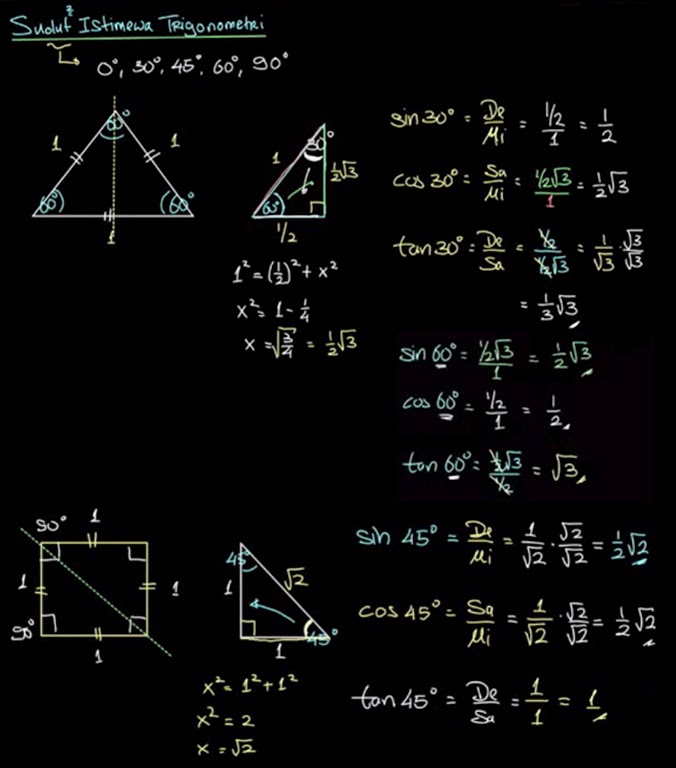 Sudut² Istimewa Trigonometri
0°, 30°, 45°, 60°, 90°
60°
1
1
60°
60°
1
30°
1
½√3
60°
1/2
1² = (1/2)² + x²
x² = 1 - 1/4
x = √(3/4) = 1/2 √3
sin 30° = De/Mi = (1/2)/1 = 1/2
cos 30° = Sa/Mi = (1/2 √3)/1 = 1/2 √3
tan 30° = De/Sa = (1/2)/(1/2 √3) = 1/√3 · √3/√3
= 1/3 √3
sin 60° = (1/2 √3)/1 = 1/2 √3
cos 60° = (1/2)/1 = 1/2
tan 60° = (1/2 √3)/(1/2) = √3
90°
1
1
1
90°
1
45°
1
√2
45°
1
x² = 1² + 1²
x² = 2
x = √2
sin 45° = De/Mi = 1/√2 · √2/√2 = 1/2 √2
cos 45° = Sa/Mi = 1/√2 · √2/√2 = 1/2 √2
tan 45° = De/Sa = 1/1 = 1